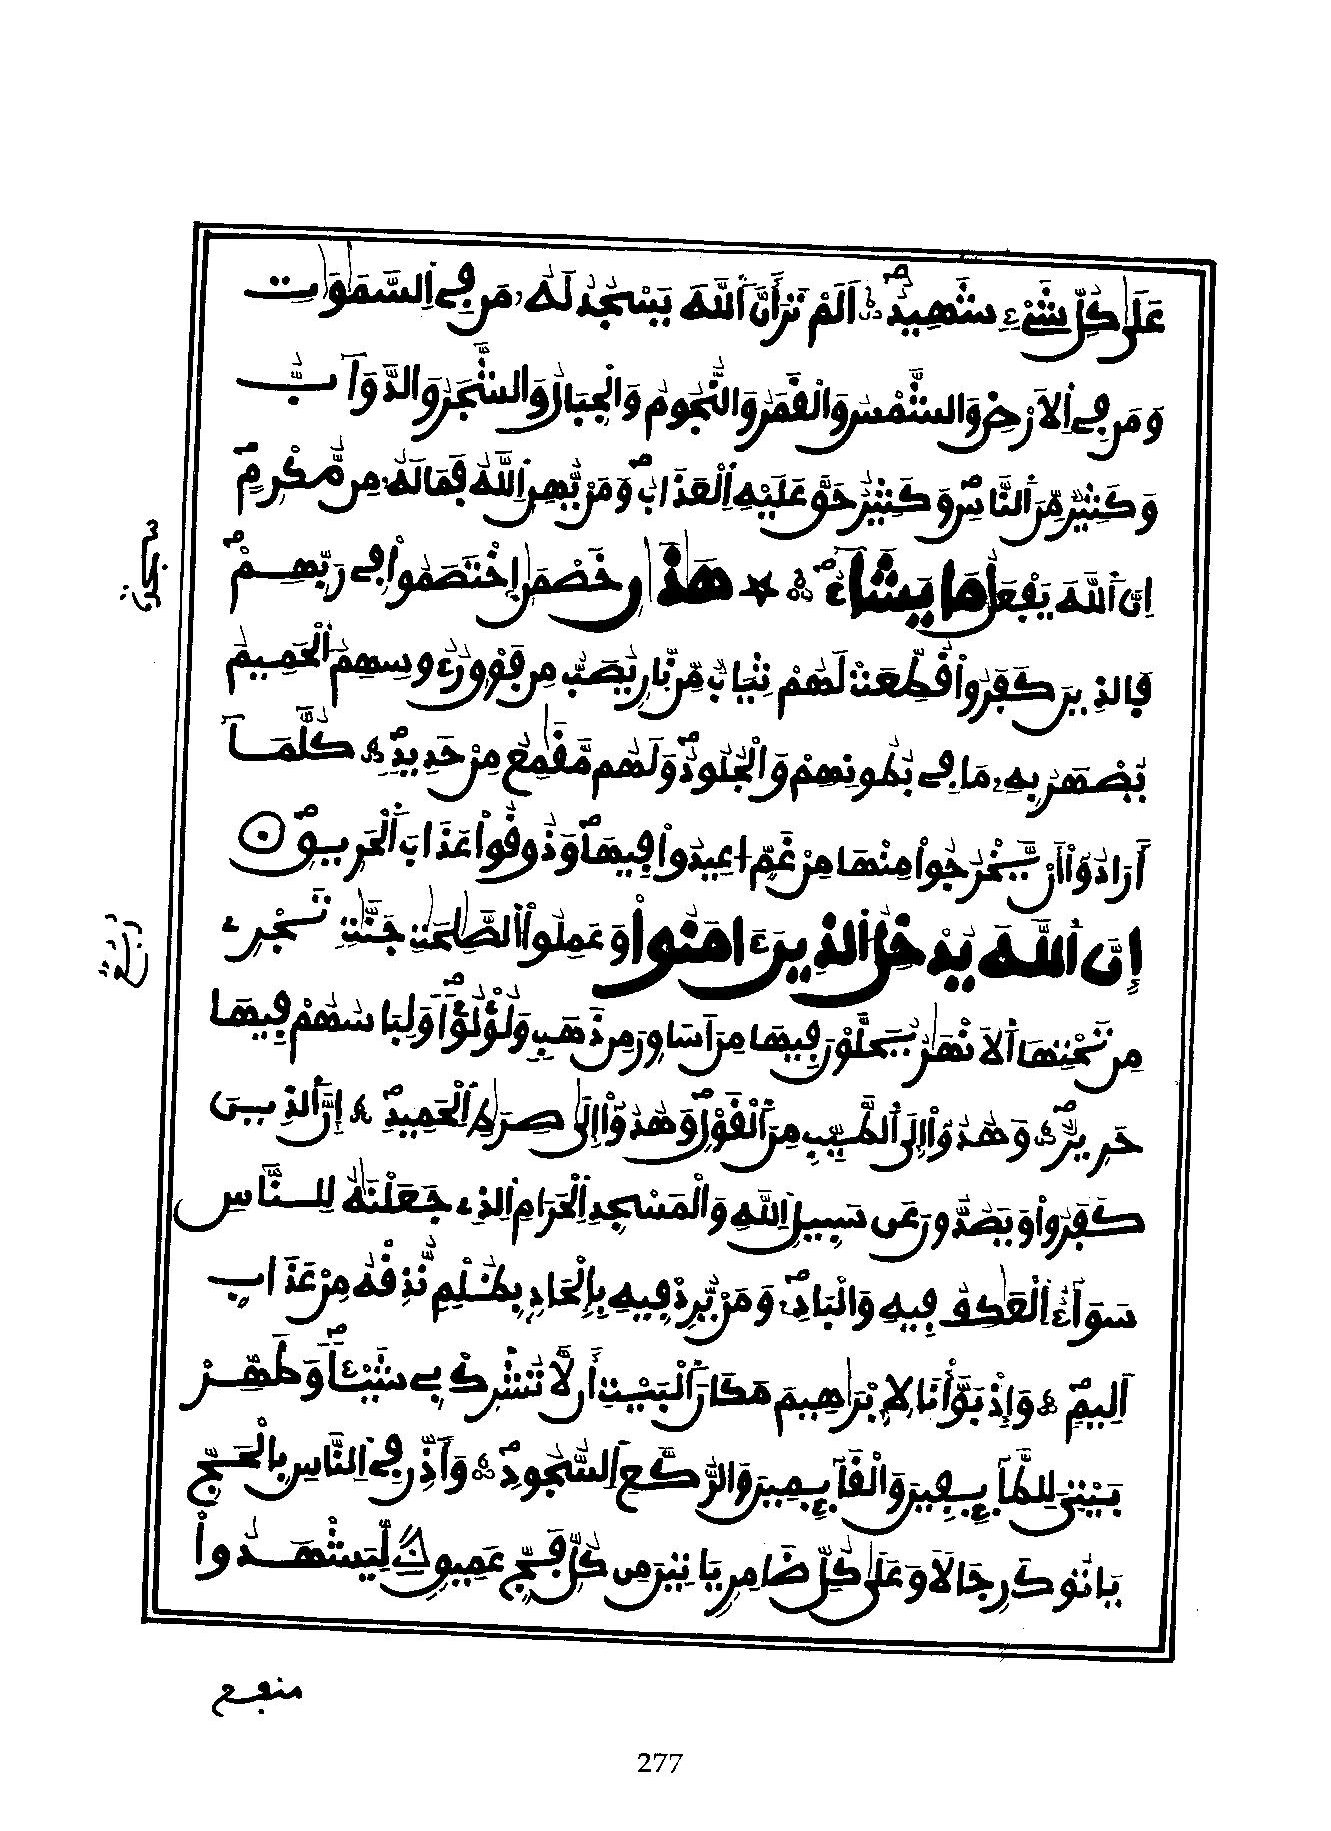 عَلَىٰ كُلِّ شَيْءٍ شَهِيدٌ اَلَمْ تَرَ أَنَّ اَللَّهَ يَسْجُدُ لَهُۥ مَن فِي اِلسَّمَٰوَٰتِ
وَمَن فِي اِلَارْضِ وَالشَّمْسُ وَالْقَمَرُ وَالنُّجُومُ وَالْجِبَالُ وَالشَّجَرُ وَالدَّوَآبُّ
وَكَثِيرٌ مِّنَ اَلنَّاسِ وَكَثِيرٌ حَقَّ عَلَيْهِ اِلْعَذَابُ وَمَنْ يُّهِنِ اِللَّهُ فَمَا لَهُۥ مِن مُّكْرِمٍ
اِنَّ اَللَّهَ يَفْعَلُ مَا يَشَآءُ هَٰذَٰنِ خَصْمَٰنِ اِخْتَصَمُواْ فِي رَبِّهِمْ
فَالذِينَ كَفَرُواْ قُطِّعَتْ لَهُمْ ثِيَابٌ مِّن نَّارٍ يُصَبُّ مِن فَوْقِ رُءُوسِهِمُ اُلْحَمِيمُ
يُصْهَرُ بِهِۦ مَا فِي بُطُونِهِمْ وَالْجُلُودُ وَلَهُم مَّقَٰمِعُ مِنْ حَدِيدٍ كُلَّمَآ
أَرَادُوٓاْ أَنْ يَّخْرُجُواْ مِنْهَا مِنْ غَمٍّ اعِيدُواْ فِيهَا وَذُوقُواْ عَذَابَ اَلْحَرِيقِ
إِنَّ اَللَّهَ يُدْخِلُ اُلذِينَ ءَامَنُواْ وَعَمِلُواْ اُلصَّٰلِحَٰتِ جَنَّٰتٍ تَجْرِي
مِن تَحْتِهَا اَلَانْهَٰرُ يُحَلَّوْنَ فِيهَا مِنَ اَسَاوِرَ مِن ذَهَبٍ وَلُؤْلُؤاً وَلِبَاسُهُمْ فِيهَا
حَرِيرٌ وَهُدُوٓاْ إِلَى اَلطَّيِّبِ مِنَ اَلْقَوْلِ وَهُدُوٓاْ إِلَىٰ صِرَٰطِ اِلْحَمِيدِ إِنَّ اَلذِينَ
كَفَرُواْ وَيَصُدُّونَ عَن سَبِيلِ اِللَّهِ وَالْمَسْجِدِ اِلْحَرَامِ اِلذِي جَعَلْنَٰهُ لِلنَّاسِ
سَوَآءٌ اِلْعَٰكِفُ فِيهِ وَالْبَادِ وَمَنْ يُّرِدْ فِيهِ بِإِلْحَادٍ بِظُلْمٍ نُّذِقْهُ مِنْ عَذَابٍ
اَلِيمٍ وَإِذْ بَوَّأْنَا لِإِبْرَٰهِيمَ مَكَانَ اَلْبَيْتِ أَن لَّا تُشْرِكْ بِي شَيْـٔاً وَطَهِّرْ
بَيْتِيَ لِلطَّآئِفِينَ وَالْقَآئِمِينَ وَالرُّكَّعِ اِلسُّجُودِ وَأَذِّن فِي اِلنَّاسِ بِالْحَجِّ
يَاتُوكَ رِجَالًا وَعَلَىٰ كُلِّ ضَامِرٍ يَاتِينَ مِن كُلِّ فَجٍّ عَمِيقٍ لِّيَشْهَدُواْ
سجدة
ربع
منفع
277